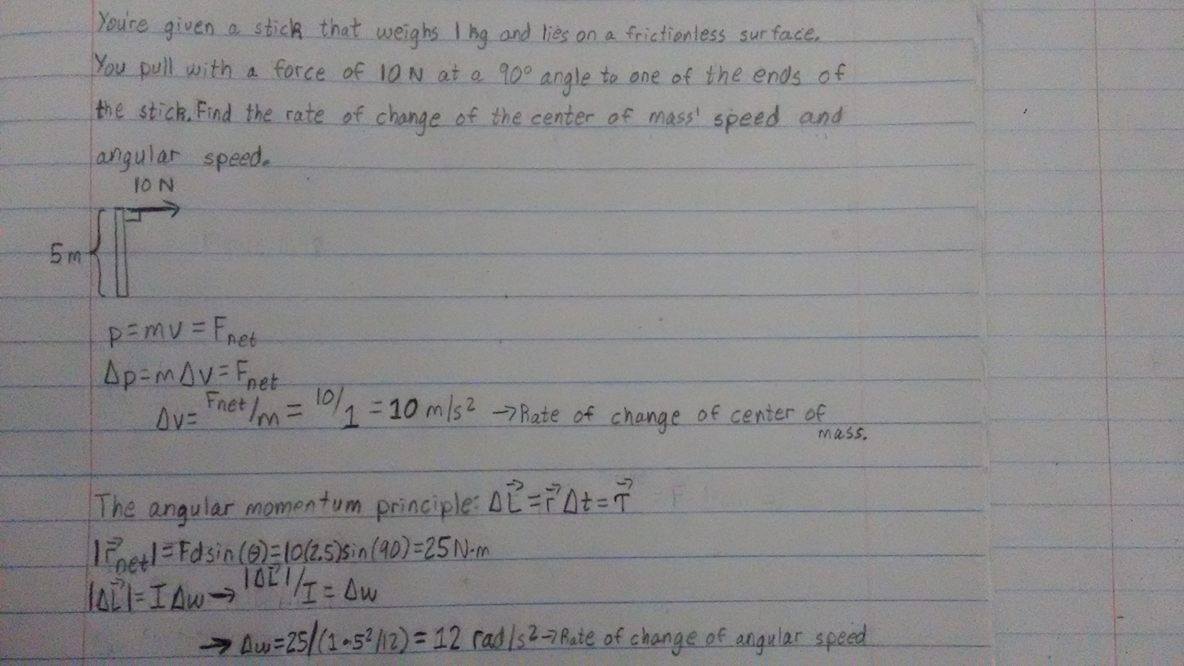 You're given a stick that weighs 1 kg and lies on a frictionless surface.
You pull with a force of 10 N at a 90° angle to one of the ends of
the stick. Find the rate of change of the center of mass' speed and
angular speed.
10 N
5 m
p=mv=Fnet
Δp=mΔv=Fnet
Δv=Fnet/m = 10/1 = 10 m/s² →Rate of change of center of
mass.
The angular momentum principle: ΔL⃗=τ⃗Δt=τ⃗
|τ⃗net|=Fdsin(θ)=10(2.5)sin(90)=25N·m
|ΔL⃗|=IΔw→|ΔL⃗|/I=Δw
→ Δw=25/(1·5²/12)=12 rad/s²→Rate of change of angular speed